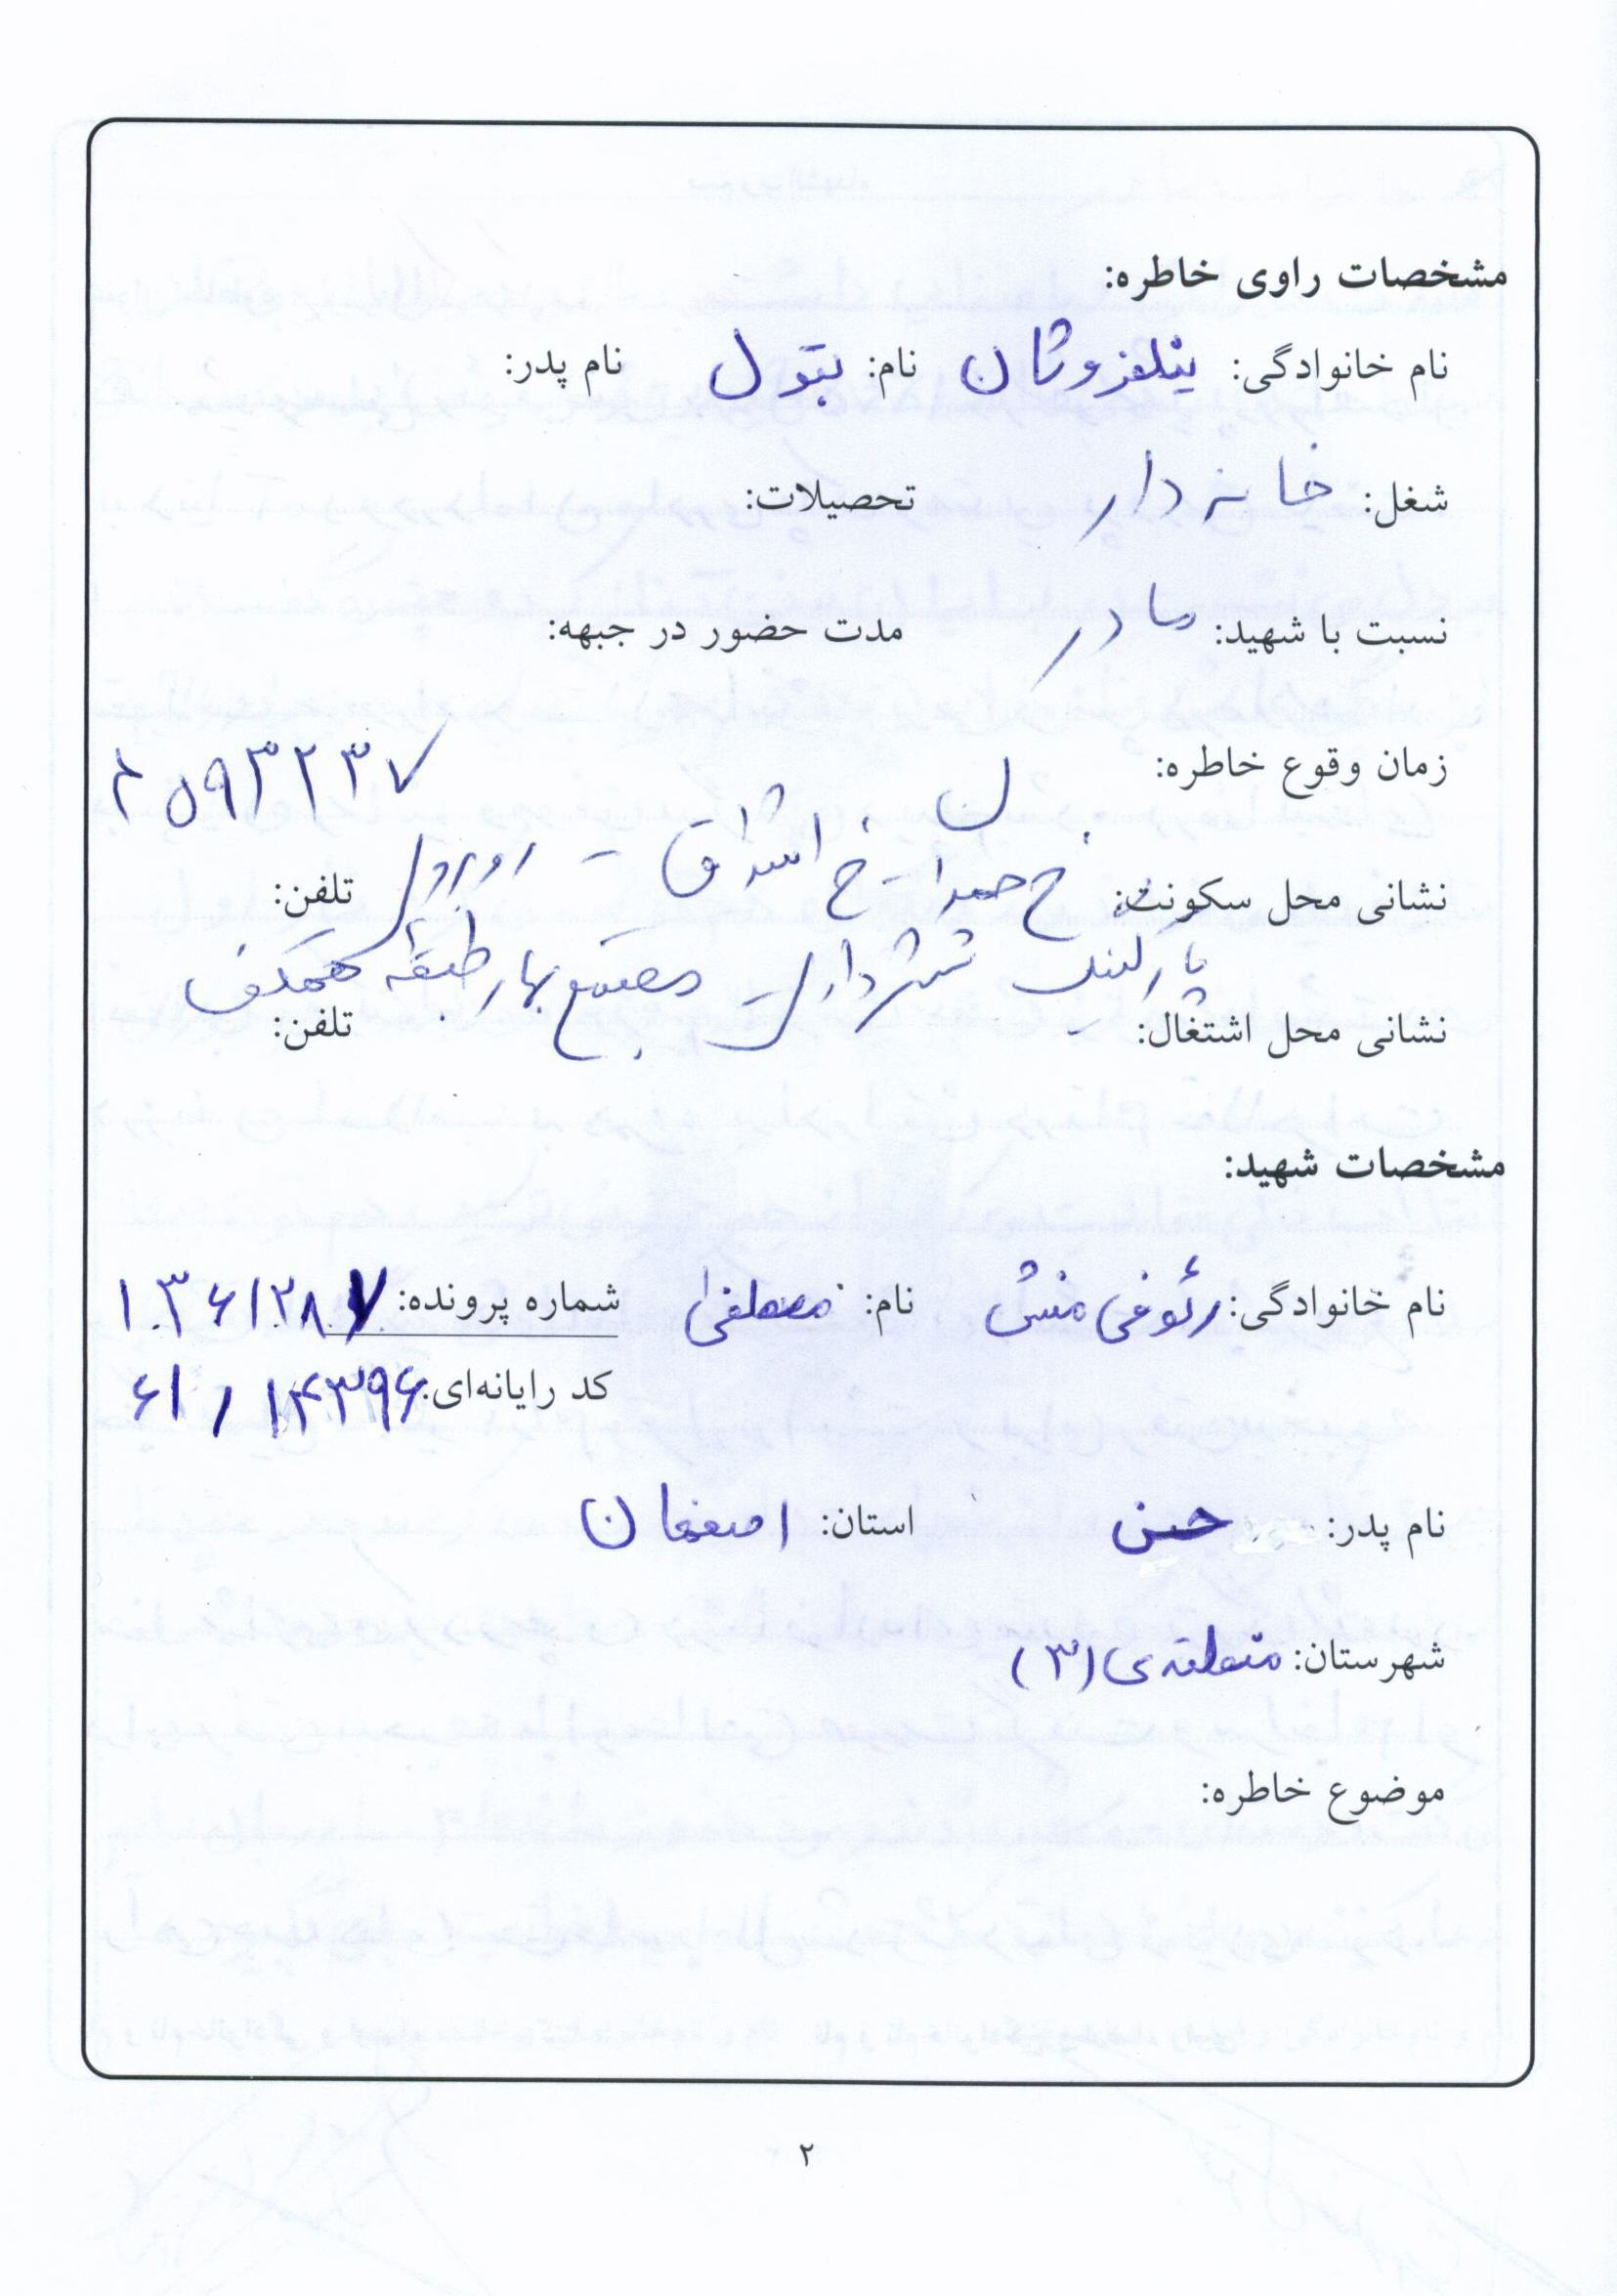 مشخصات راوی خاطره:
نام خانوادگی: پنلفروشان نام: بتول نام پدر:
شغل: خانه دار تحصیلات:
نسبت با شهید: مادر مدت حضور در جبهه:
زمان وقوع خاطره:
نشانی محل سکونت: خ خ اشراق - تلفن:
پارکینگ شهرداری مجتمع بهار طبقه همکف
نشانی محل اشتغال: تلفن:
مشخصات شهید:
نام خانوادگی: رئوفی منش نام: مصطفی شماره پرونده: ۱۰۳۶۱۲۸۷
کد رایانه‌ای: ۶۱/۱۴۳۹۶
نام پدر: حسن استان: اصفهان
شهرستان: منطقه ی (۳)
موضوع خاطره:
۲